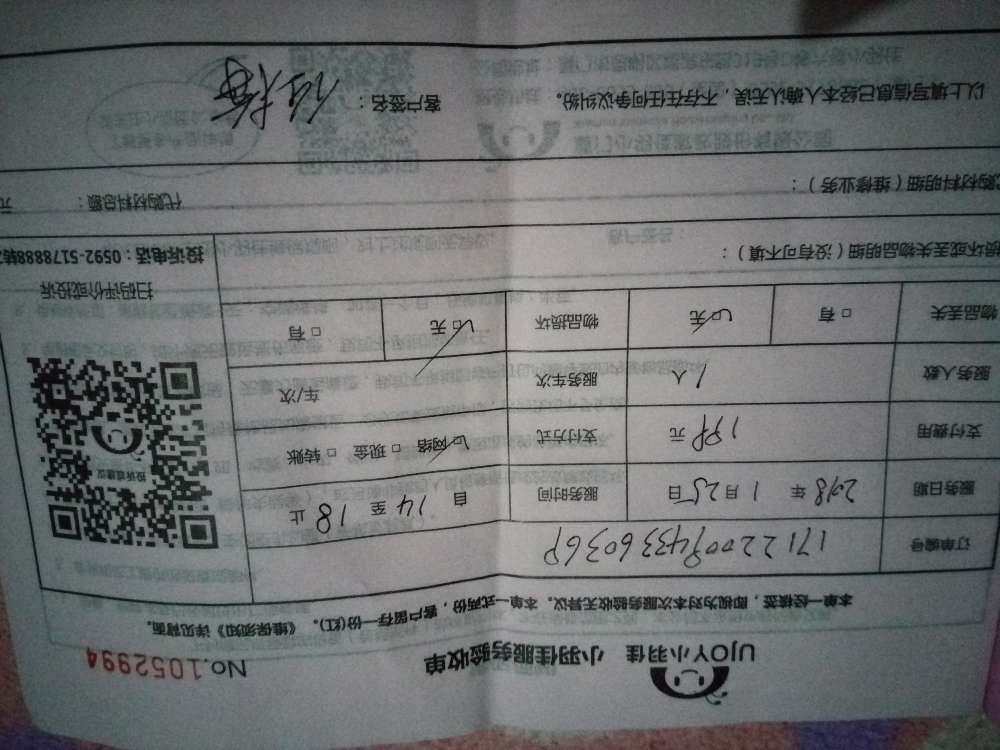 UJOY小羽佳 小羽佳服务验收单
No.1052994
本单一经核签，即视为对本次服务验收无异议。本单一式两份，客户留存一份(红)。《维保须知》详见背面。
订单编号
服务日期 2018 年 1 月 25 日 服务时间 自 14 至 18 止
支付费用 198 元 支付方式 ☑网络 □现金 □转账
服务人数 1 人 服务车次 车/次
物品丢失 □有 ☑无 物品损坏 ☑无 □有
投诉或建议
扫码评价或投诉
投诉电话：0592-5178888转
损坏或丢失物品明细（没有可不填）：
代购材料明细（维修业务）： 代购材料总额： 元
以上填写信息已经本人确认无误，不存在任何争议纠纷。 客户签名：